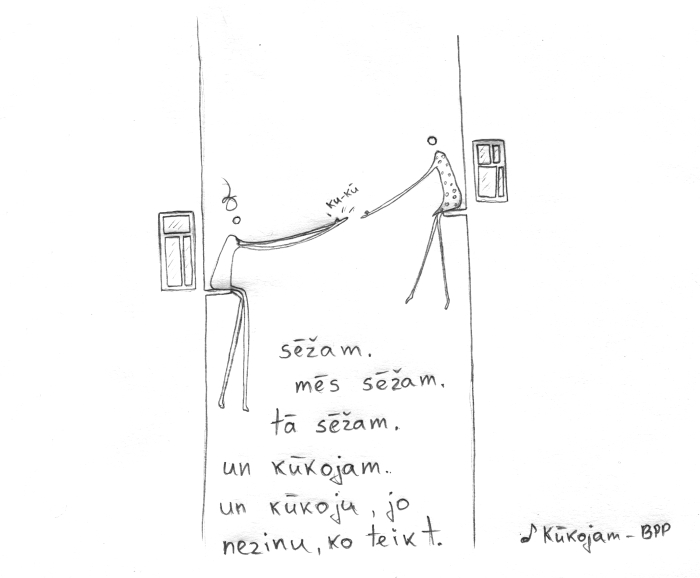 ku-kū
sēžam.
mēs sēžam.
tā sēžam.
un kūkojam..
un kūkoju, jo
nezinu, ko teikt.
♪ Kūkojam - BPP